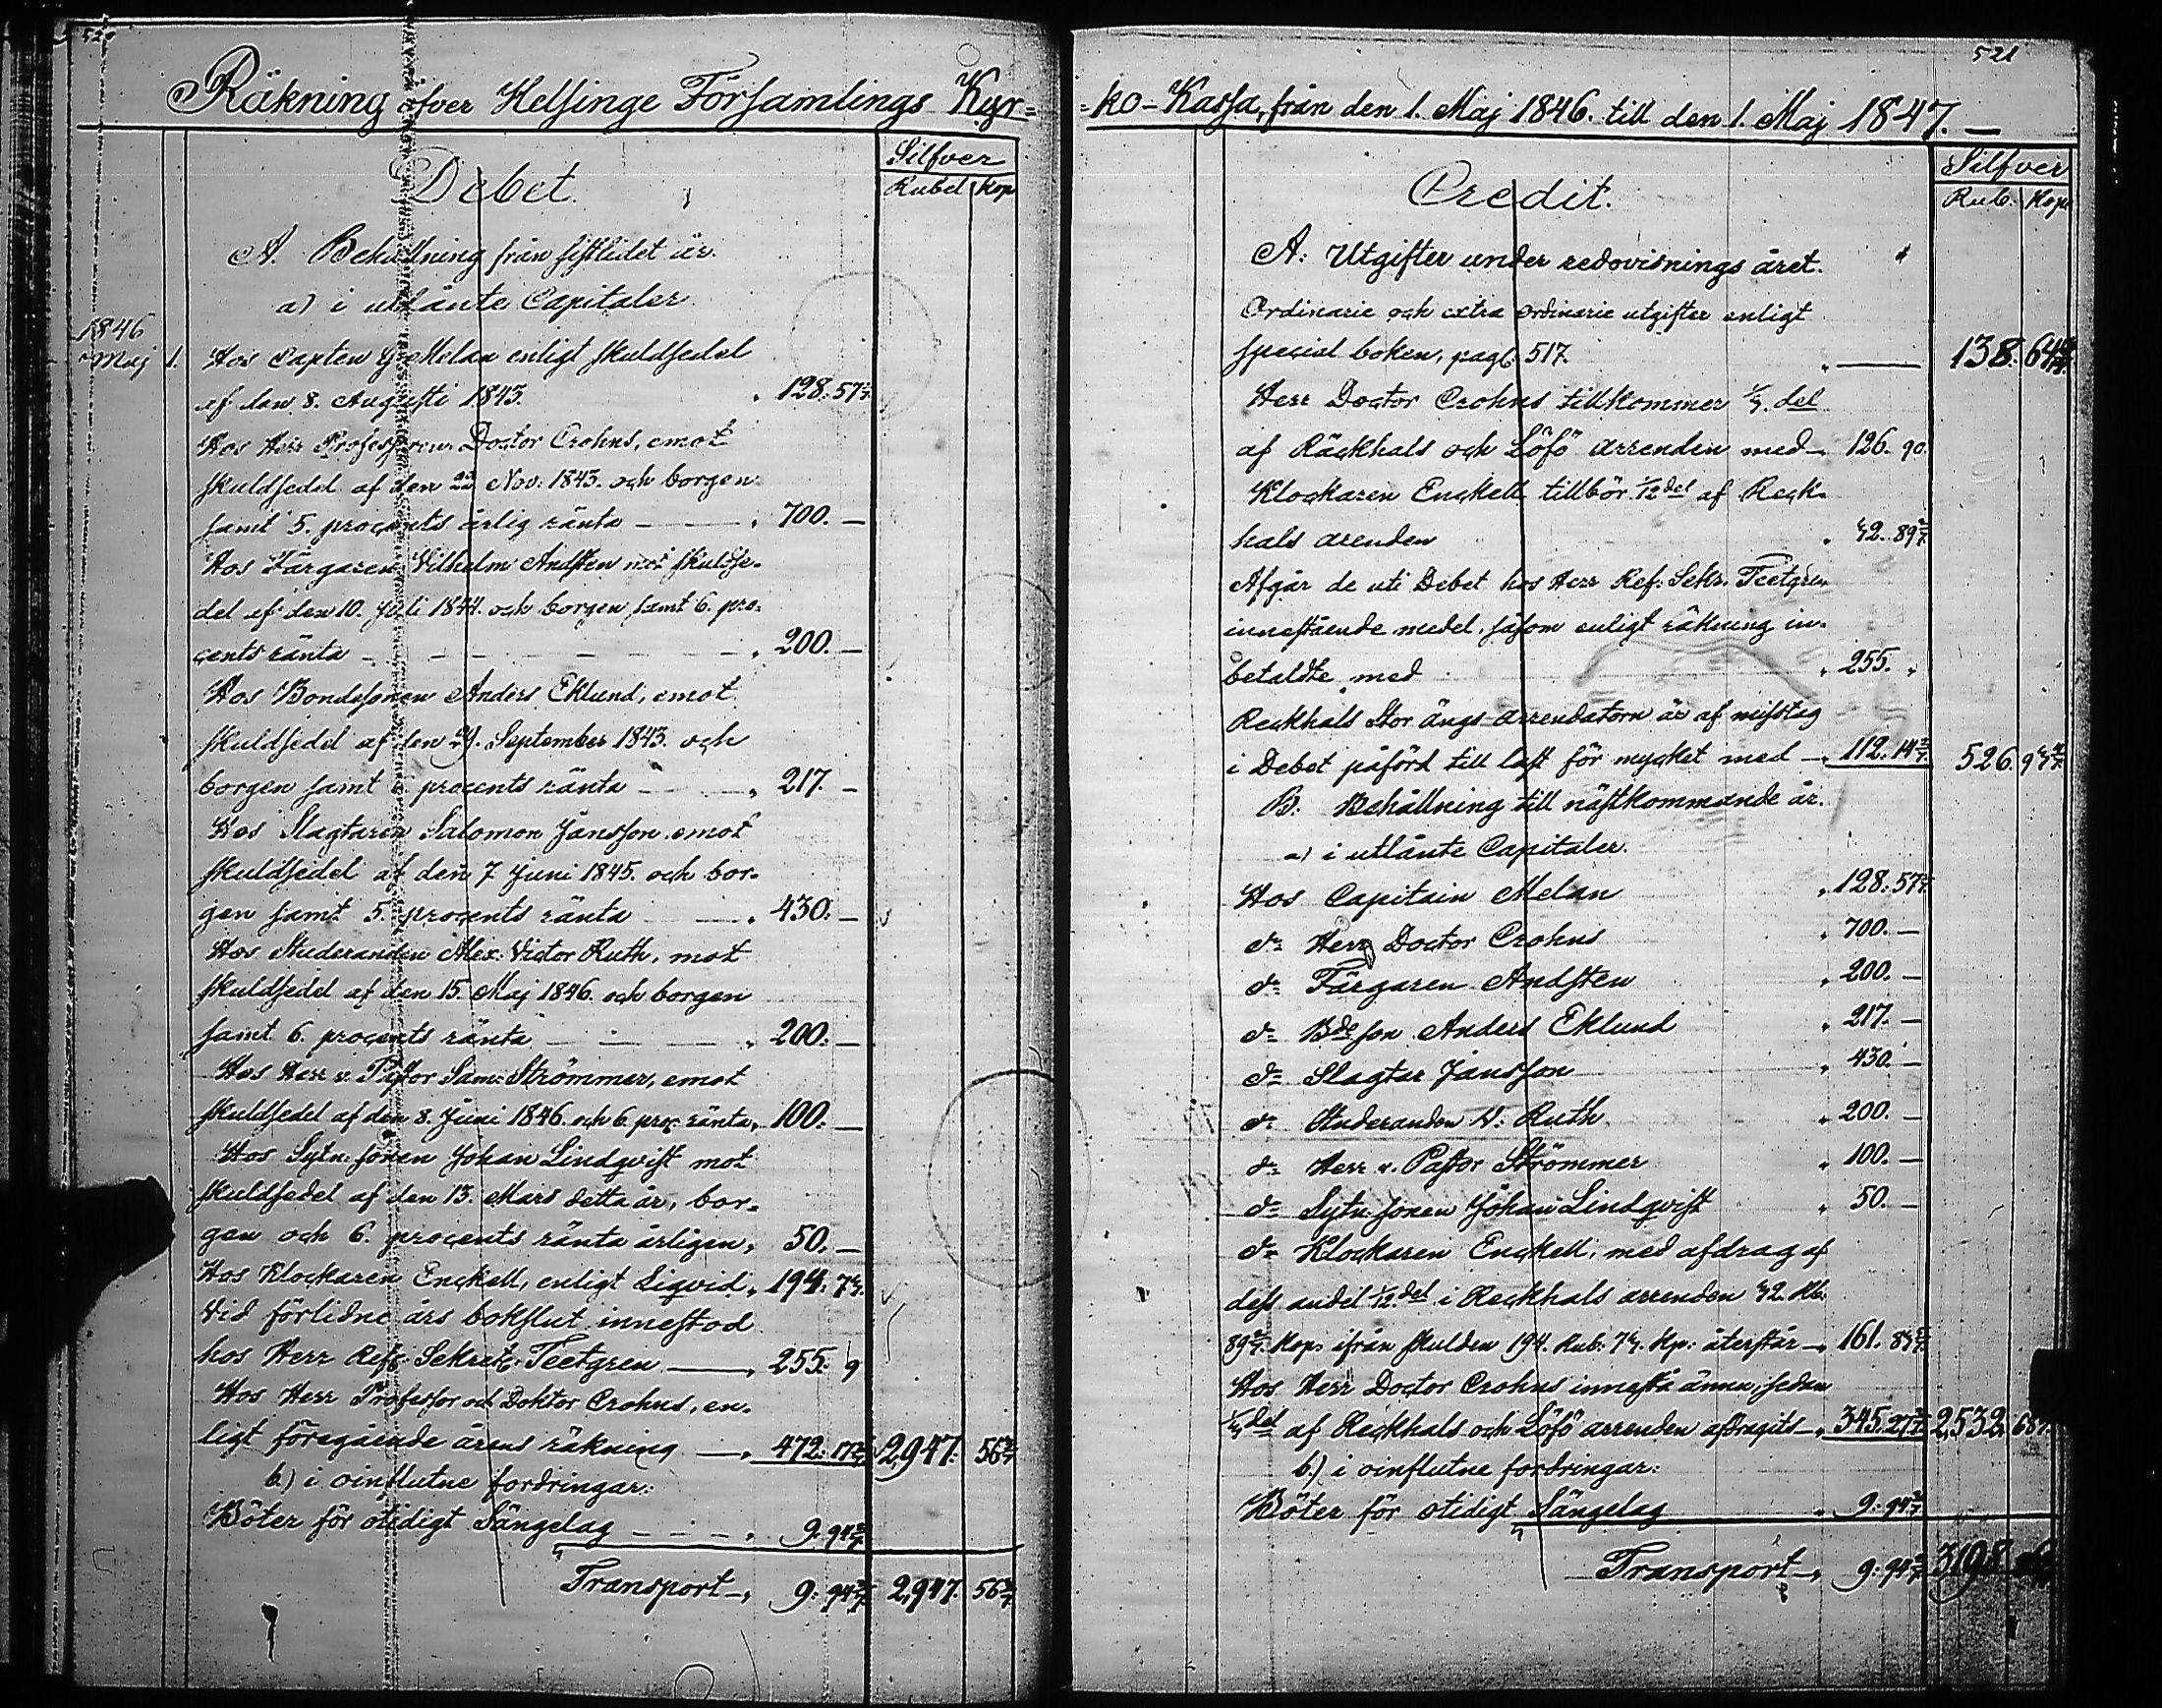 520
Räkning öfver Helsinge Församlings Kyr=
Silfver
Debet.
Rubel Kop
A. Behållning från sistlidet år.
a) i utlånte Capitaler
1846
Maj 1. Hos Capten G. Melan enligt skuldsedel
af den 8. Augusti 1843. " 128. 57 1/7.
Hos Herr Professoren Doctor Crohns, emot
skuldsedel af den 22 Nov. 1843. och borgen
samt 5. procents årlig ränta — — " 700. —
Hos Färgaren Vilhelm Andsten mot skuldse-
del af den 10. Juli 1844. och borgen samt 6. pro-
cents ränta — — — — — — " 200. —
Hos Bondesonen Anders Eklund, emot
skuldsedel af den 29. September 1843. och
borgen samt procents ränta — — " 217. —
Hos Slagtaren Salomon Jansson emot
skuldsedel af den 7 Juni 1845. och bor-
gen samt 5. procents ränta — " 430. —
Hos Studeranden Alex: Victor Ruth, mot
skuldsedel af den 15. Maj 1846. och borgen
samt 6. procents ränta — — — " 200. —
Hos Herr v. Pastor Sam: Strömmer, emot
skuldsedel af den 8. Juni 1846. och 6. proc. ränta " 100. —
Hos Sytn: sonen Johan Lindqvist mot
skuldsedel af den 13. Mars detta år, bor-
gen och 6. procents ränta årligen " 50. —
Hos Klockaren Enckell, enligt Liqvid " 194. 74.
Vid förlidne års bokslut innestod
hos Herr Ref: Sekret: Teetgren — " 255. 9
Hos Herr Professor och Doktor Crohns, en-
ligt föregående årens räkning — " 472. 17 1/7 2,947. 56 3/7
b.) i oinflutne fordringar:
Böter för otidigt Sängelag — — — " 9. 94 2/7
Transport —, 9. 94 2/7. 2,947. 56 3/7
521
=ko-Kassa, från den 1. Maj 1846. till den 1. Maj 1847. —
Silfver
Credit.
Rub. Kop
A: Utgifter under redovisnings året.
Ordinarie och extra ordinarie utgifter enligt
special boken, pag: 517. " — 138. 64
Herr Doctor Crohns tillkommer 1/4. del
af Räckhals och Löfö arrenden med — 126. 90.
Klockaren Enckell tillbör 1/12 del af Reck-
hals arenden " 32. 89 2/7
Afgår de uti Debet hos Herr Ref: Sekr. Teetgren
innestående medel, såsom enligt räkning in-
betaldte med " 255. "
Reckhals Stor ängs arrendatorn är af misstag
i Debet påförd till last för mycket med — 112. 14 2/7. 526. 94
B: Behållning till nästkommande år.
a) i utlånte Capitaler.
Hos Capitain Melan " 128. 57 1/7
do Herr Doctor Crohns " 700. —
do Färgaren Andsten " 200. —
do Bde son Anders Eklund " 217. —
do Slagtar Jansson " 430. —
do Studeranden V. Ruth " 200. —
do Herr v. Pastor Strömmer " 100. —
do Sytn: sonen Johan Lindqvist " 50. —
do Klockaren Enckell, med afdrag af
dess andel 1/12. del i Reckhals arrenden 32. Rb.
89 2/7. Kop. ifrån skulden 194. Rub: 74. Kp: återstår — 161. 84
Hos Herr Doctor Crohns innestå ännu, sedan
1/4 del af Reckhals och Löfö arrenden afdragits — 345. 27 2,532. 68
b.) i oinflutne fordringar:
Böter för otidigt Sängelag " 9. 94 2/7
Transport —, 9. 94 2/7 3198